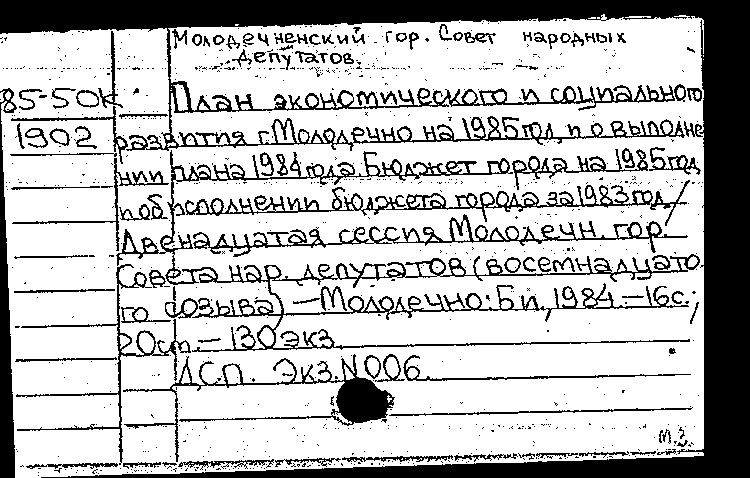 Молодечненский гор. Совет народных
депутатов.
85-50К
1902
План экономического и социального
развития г. Молодечно на 1985 год и о выполне
нии плана 1984 года. Бюджет города на 1985 год
и об исполнении бюджета города за 1983 год /
Двенадцатая сессия Молодечн. гор.
Совета нар. депутатов (восемнадцато
го созыва) — Молодечно: Б.и., 1984. — 16с.;
20см. — 130 экз.
ДСП. Экз. N 006.
М.З.